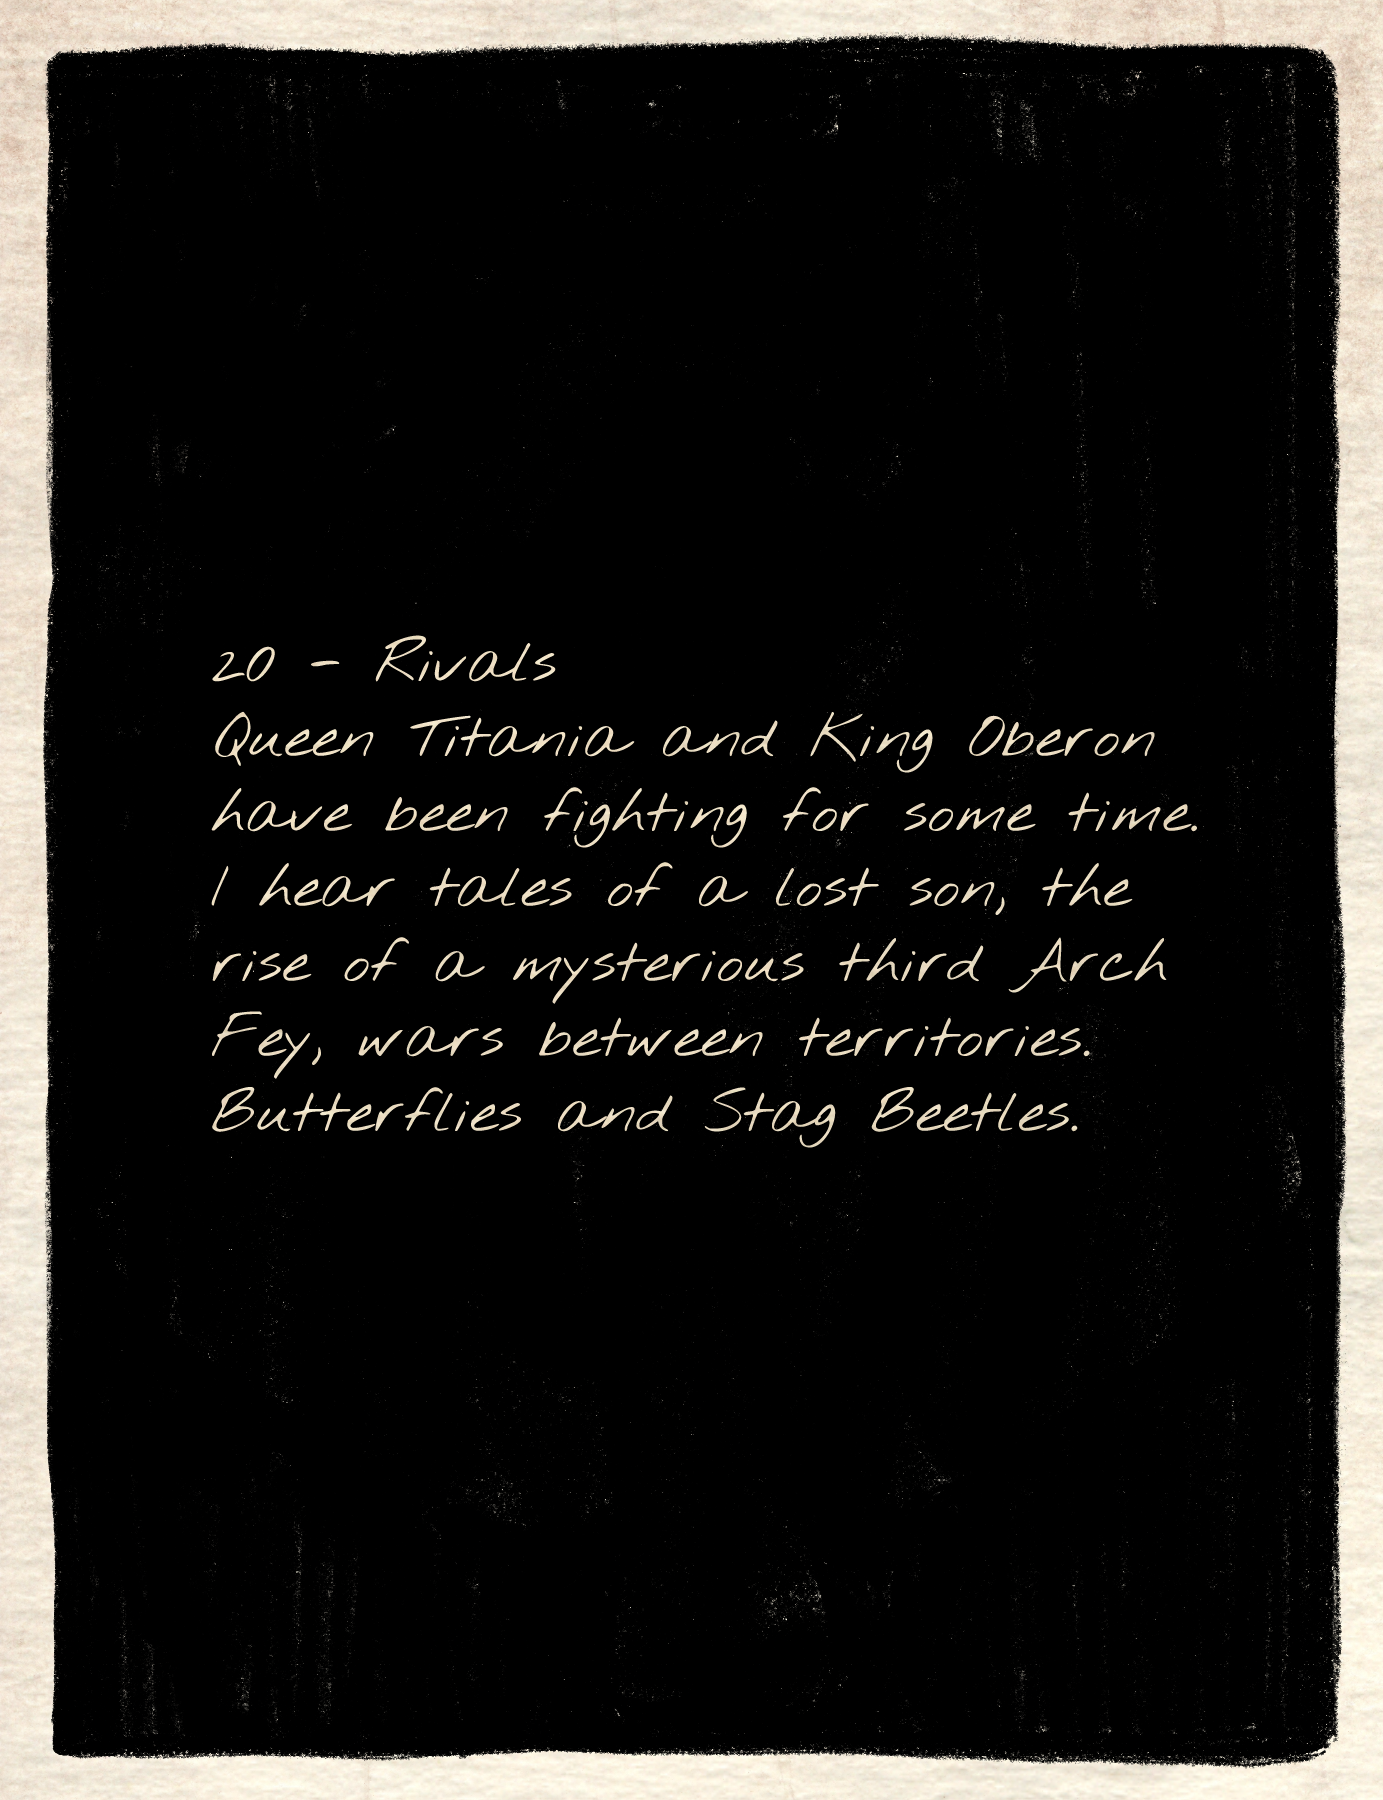 20 - Rivals
Queen Titania and King Oberon
have been fighting for some time.
I hear tales of a lost son, the
rise of a mysterious third Arch
Fey, wars between territories.
Butterflies and Stag Beetles.